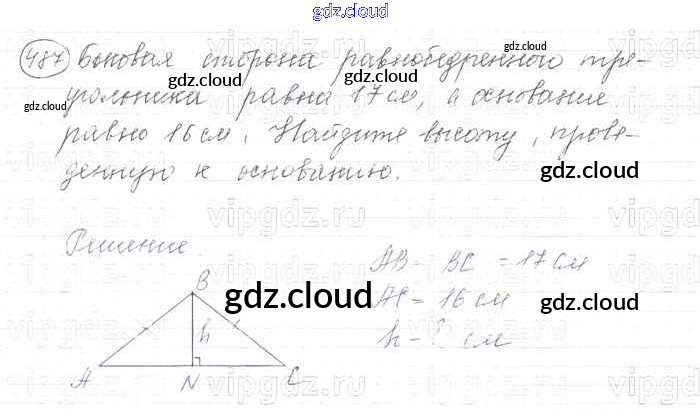 gdz.cloud
487 Боковая сторона равнобедренного тре-
gdz.cloud gdz.cloud
gdz.cloud
угольника равна 17 см, а основание
равно 16 см. Найдите высоту, прове-
денную к основанию.
gdz.cloud
vipgdz.ru vipgdz.ru
Решение.
AB = BC = 17 см
B
gdz.cloud gdz.cloud
AC = 16 см
h
h - ? см
A N C